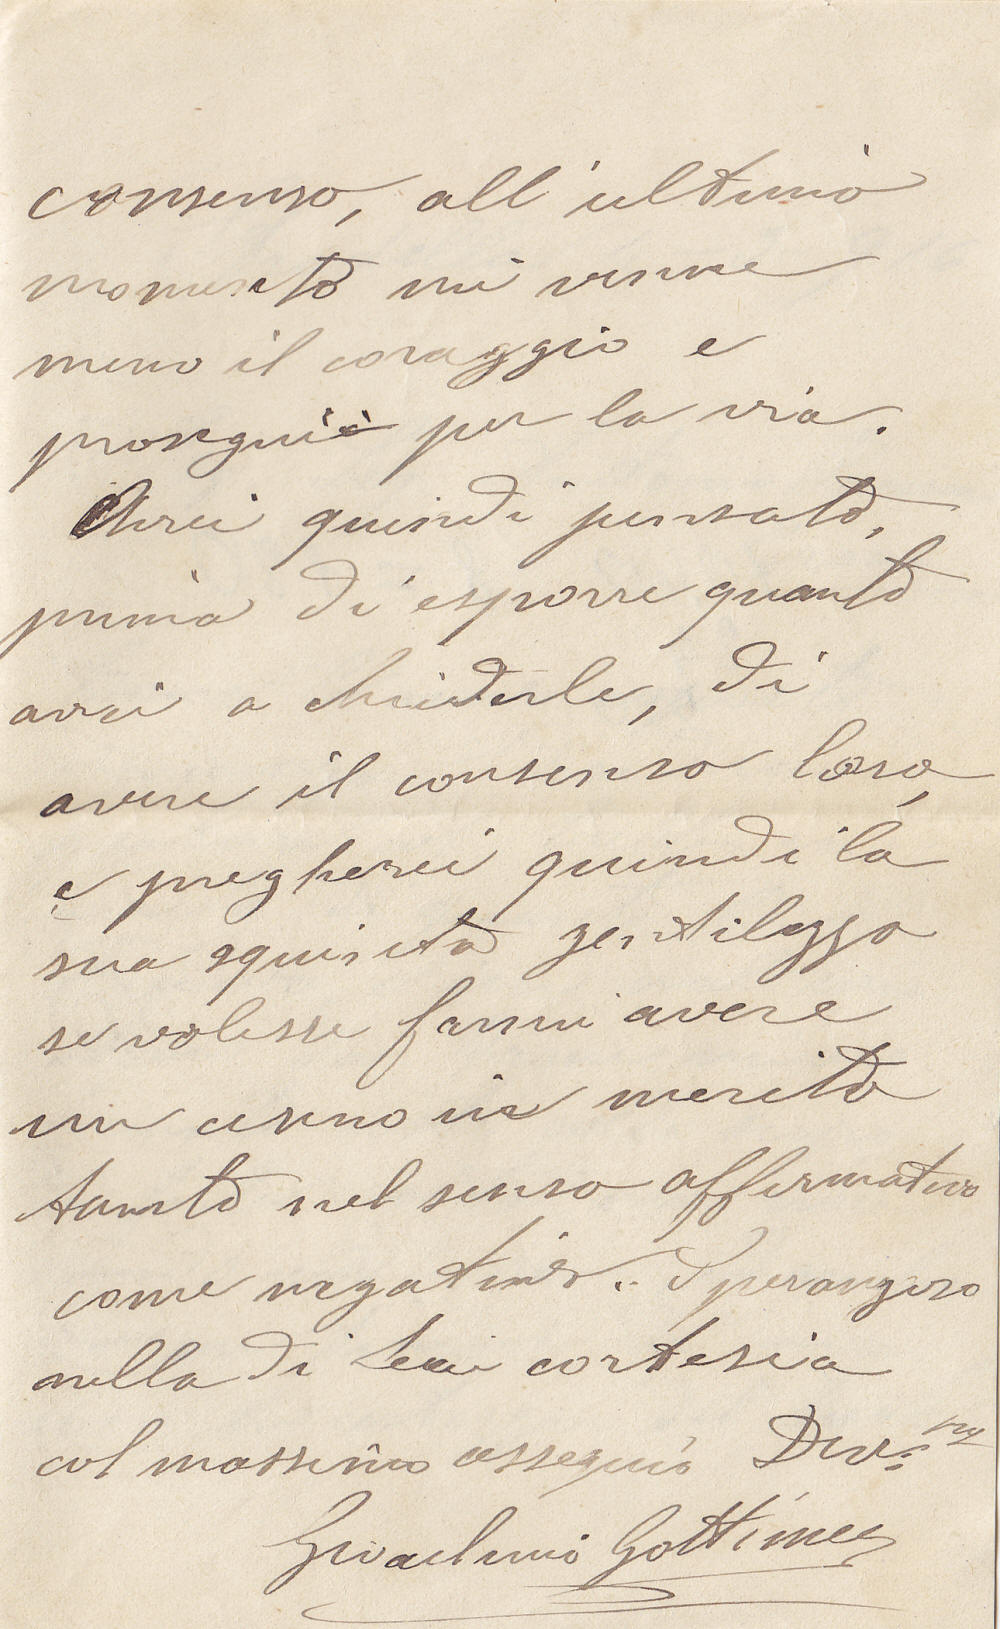 consenso, all'ultimo
momento mi venne
meno il coraggio e
proseguii per la via.
Avrei quindi pensato,
prima di esporre quanto
avrei a chiederle, di
avere il consenso loro,
e pregherei quindi la
sua squisita gentilezza
se volesse farmi avere
un cenno in merito
tanto nel senso affermativo
come negativo. Speranzoso
nella di Lei cortesia
col massimo ossequio Dev.mo